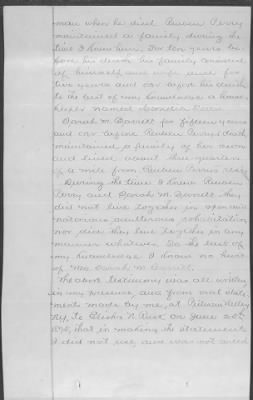 man when he died Reuben Perry
maintained a family during the
time I knew him. For ten years be-
fore his death his family consisted
of himself and wife and for
five years and over before his death
to the best of my knowledge a house
keeper named
Sarah M. Barrett for fifteen years
and over before Reuben Perrys death
maintained a family of her own
and lived about three quarters
of a mile from Reuben Perrys
During the time I knew Reuben
Perry and Sarah M. Barrett they
did not live together in open and
notorious adulterous cohabitation
nor did they live together in any
manner whatever. To the best of
my knowledge I know no
of Mrs Sarah M. Barrett.
The above testimony was all written
in my presence, and from oral state-
ments made by me, at Putnam Valley
N.Y. to on June 20th
that in making the statements
I did not use, and was not aided